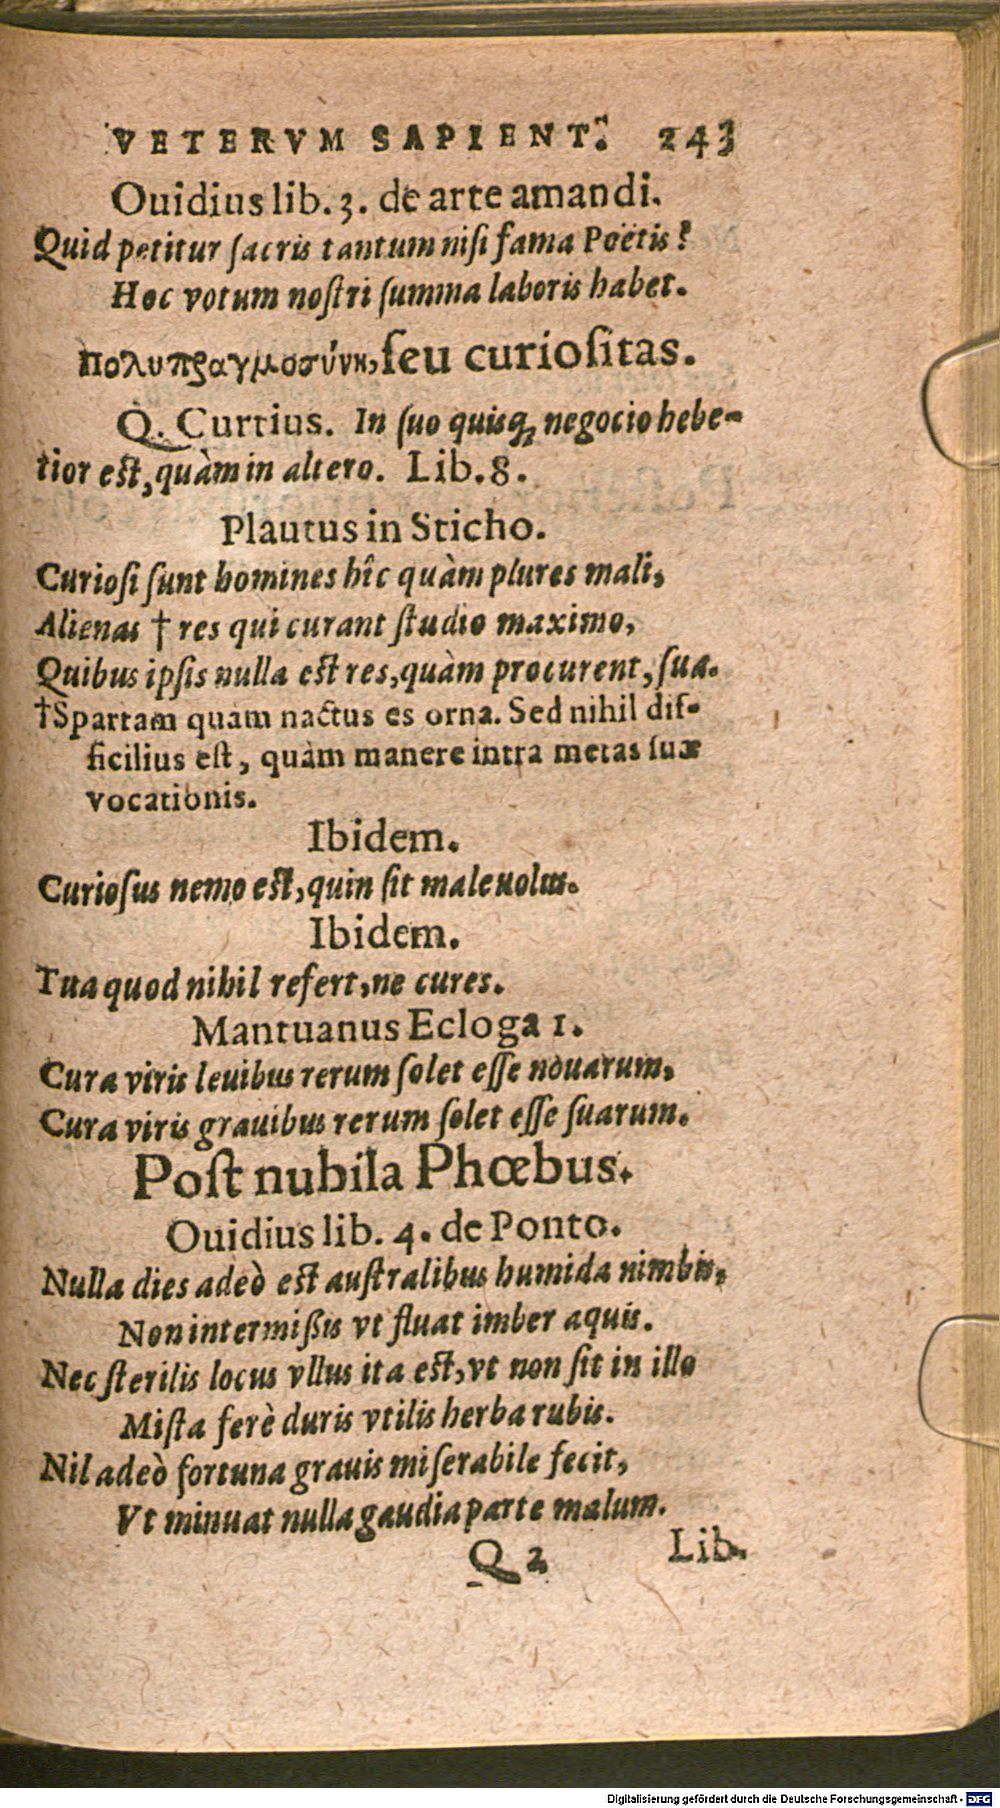 VETERVM SAPIENT. 243
Ouidius lib. 3. de arte amandi.
Quid petitur ſacris tantum niſi fama Poëtis?
Hoc votum noſtri ſumma laboris habet.
Πολυπραγμοσύνη, ſeu curioſitas.
Q. Curtius. In ſuo quisq; negocio hebe-
tior eſt, quàm in altero. Lib. 8.
Plautus in Sticho.
Curioſi ſunt homines hîc quàm plures mali,
Alienas † res qui curant ſtudio maximo,
Quibus ipſis nulla eſt res, quàm procurent, ſua.
†Spartam quam nactus es orna. Sed nihil dif-
ficilius eſt, quàm manere intra metas ſuæ
vocationis.
Ibidem.
Curioſus nemo eſt, quin ſit maleuolus.
Ibidem.
Tua quod nihil refert, ne cures.
Mantuanus Ecloga 1.
Cura viris leuibus rerum ſolet eſſe nouarum,
Cura viris grauibus rerum ſolet eſſe ſuarum.
Poſt nubila Phœbus.
Ouidius lib. 4. de Ponto.
Nulla dies adeò eſt auſtralibus humida nimbis,
Non intermißis vt fluat imber aquis.
Nec ſterilis locus vllus ita eſt, vt non ſit in illo
Miſta ferè duris vtilis herba rubis.
Nil adeò fortuna grauis miſerabile fecit,
Vt minuat nulla gaudia parte malum.
Q 2 Lib.
Digitalisierung gefördert durch die Deutsche Forschungsgemeinschaft - DFG